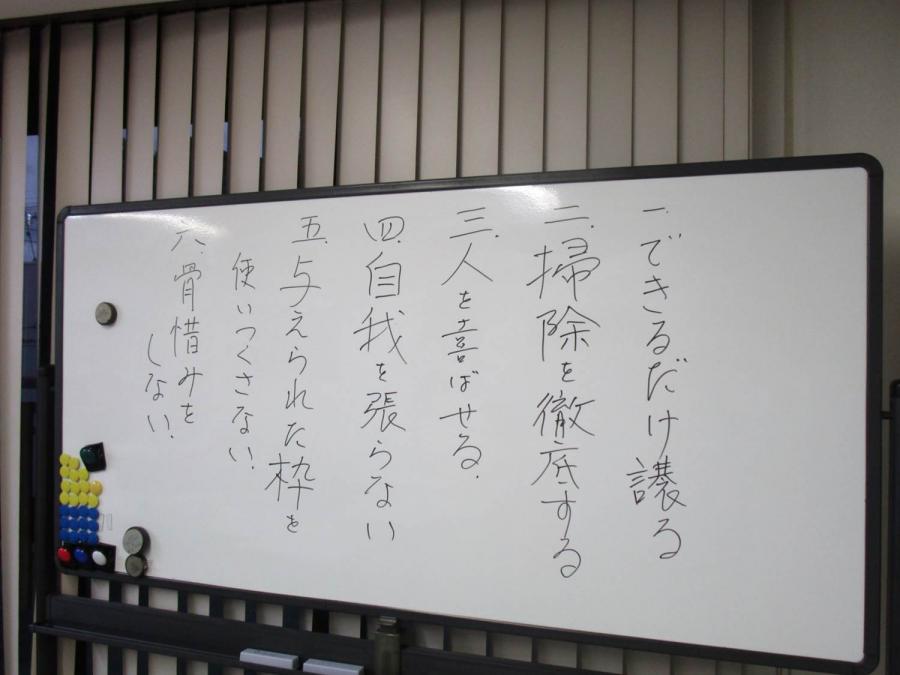 一、できるだけ譲る
二、掃除を徹底する
三、人を喜ばせる。
四、自我を張らない
五、与えられた枠を
使いつくさない、
六、骨惜みを
しない、